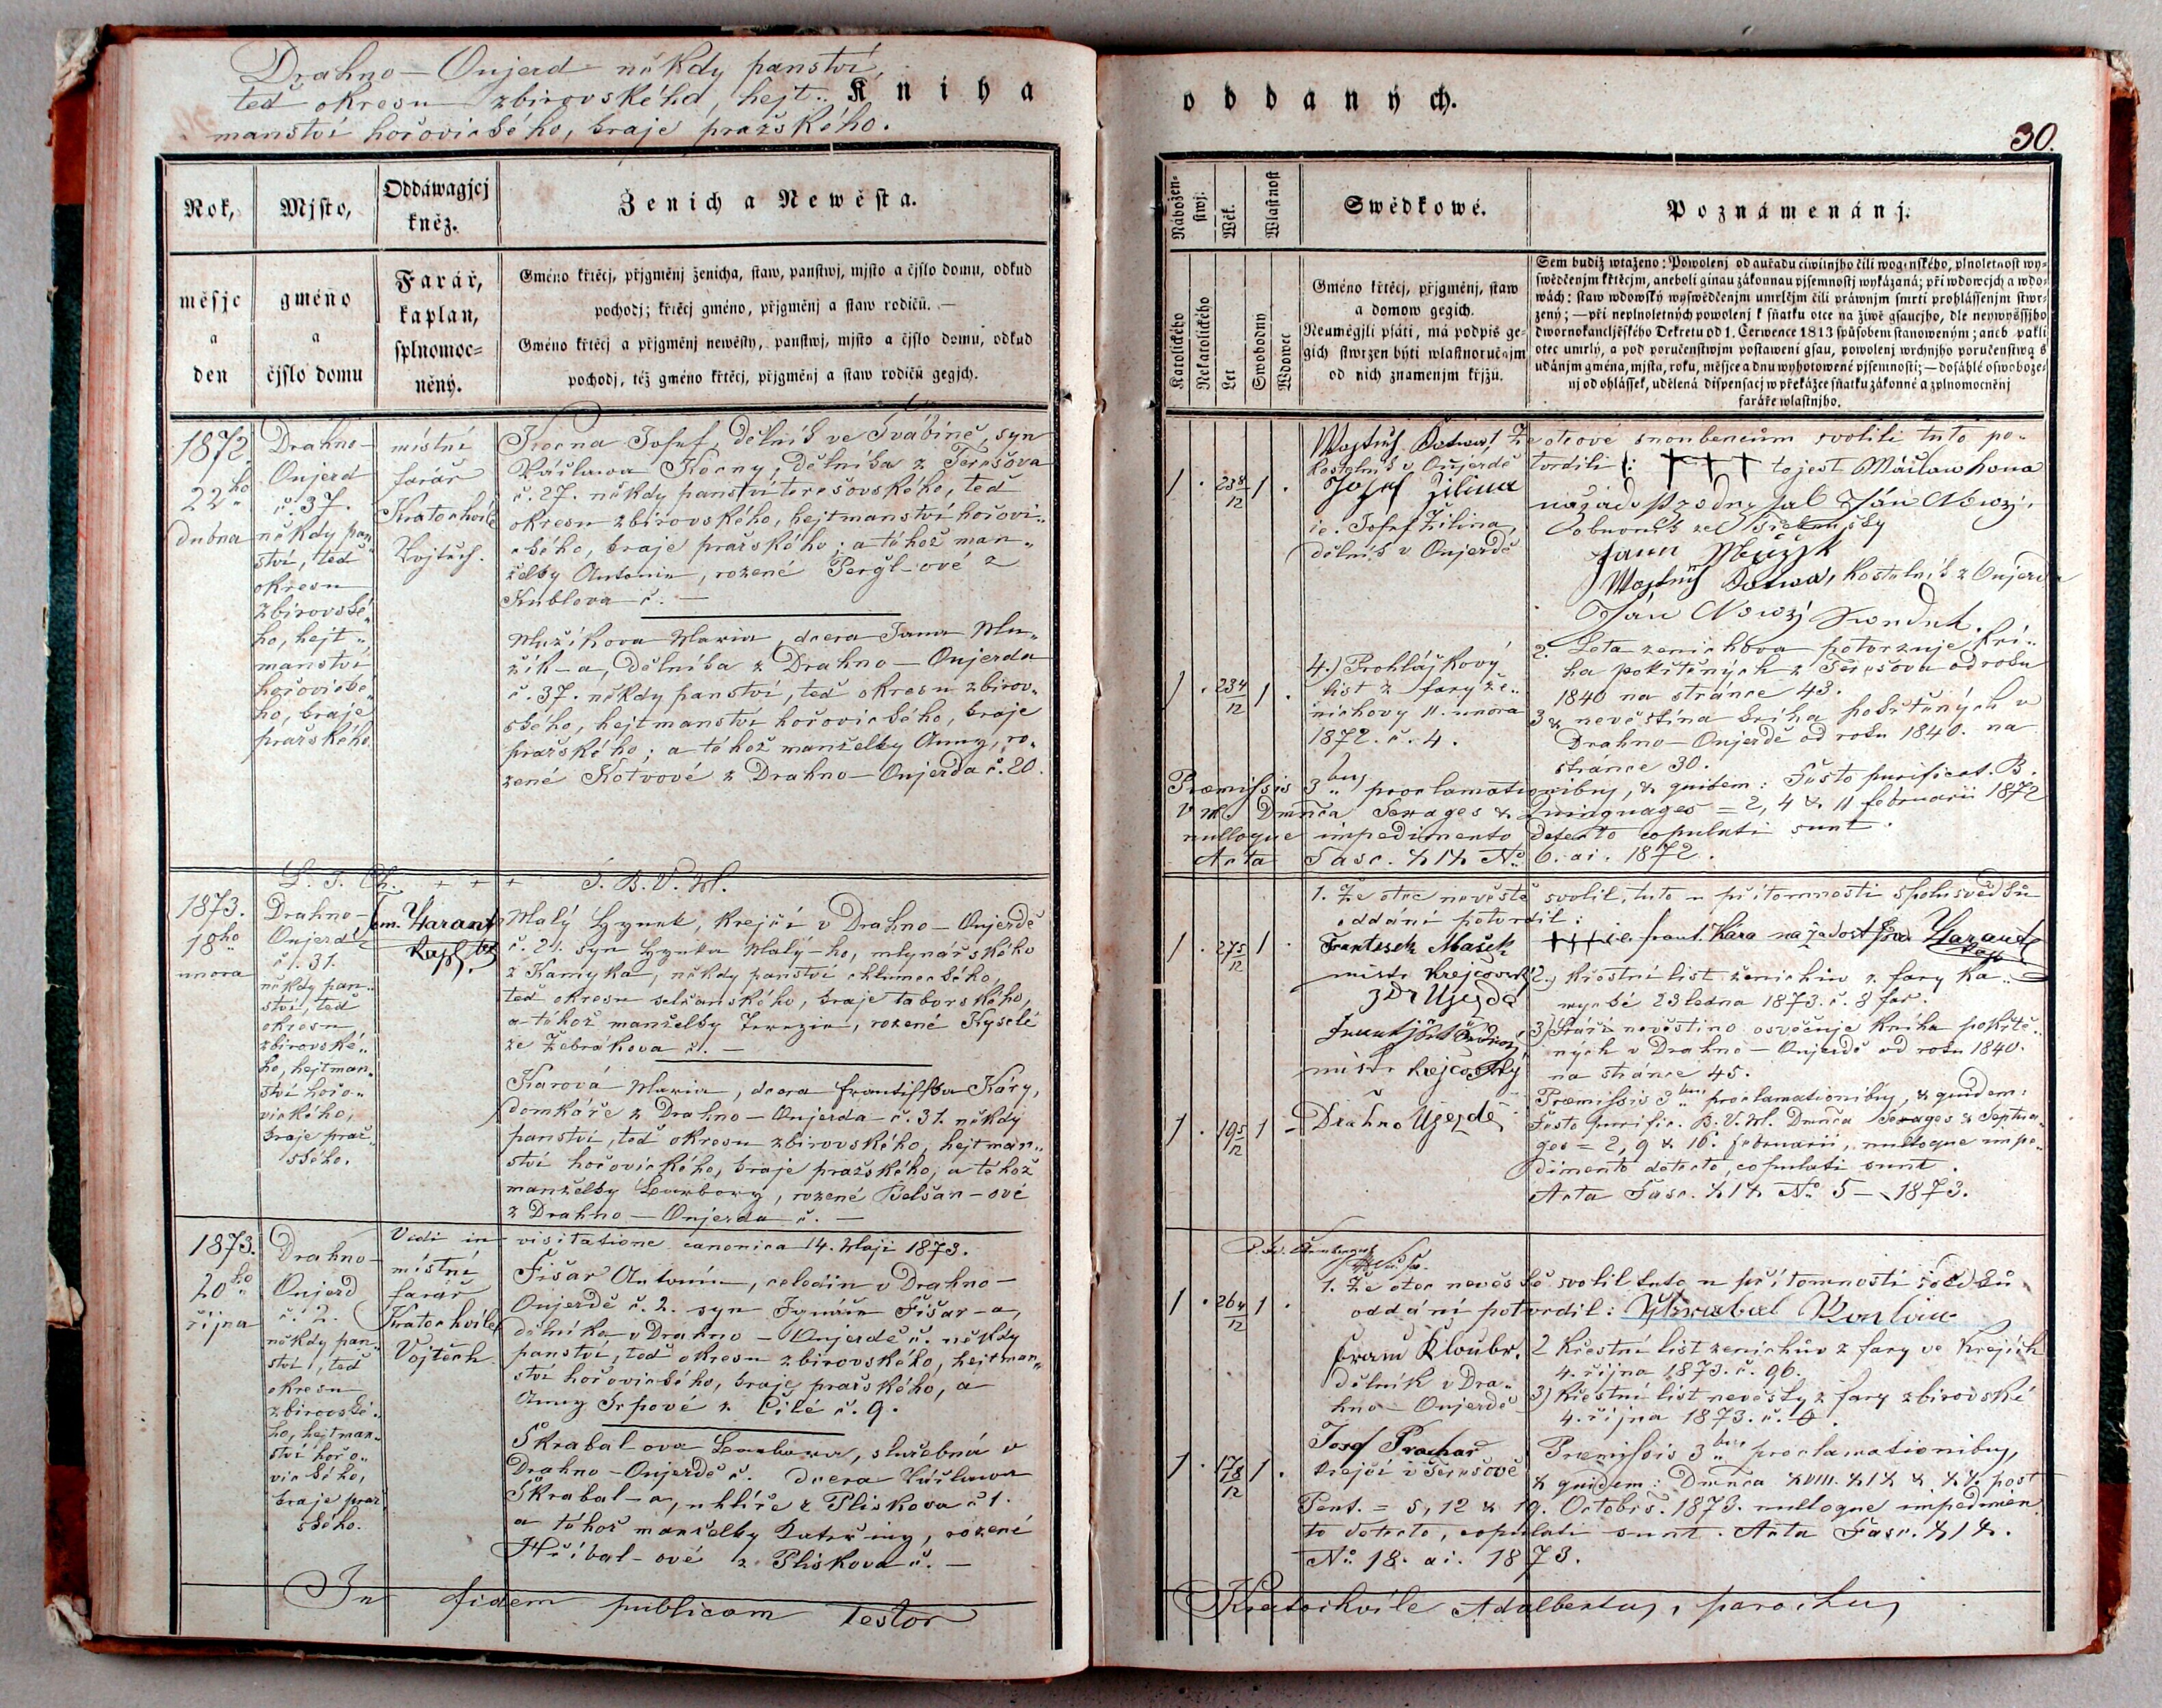 Drahno — Oujezd někdy panství,
teď okresu zbirovského, hejt„
manství hořovického, kraje pražského.
Kniha
oddaných.
30.
Rok,
měsjc
a
den
Mjsto,
gméno
a
čjslo domu
Oddáwagjcj
kněz.
Farář,
kaplan,
splnomoc=
něný.
Ženich a Newěsta.
Gméno křticj, přjgměnj ženicha, staw, panstwj, mjsto a čjslo domu, odkud
pochodj; křticj gméno, přjgměnj a staw rodičů. —
Gméno křticj a přjgměnj newěsty, panstwj, mjsto a čjslo domu, odkud
pochodj, též gméno křticj, přjgměnj a staw rodičů gegjch.
Nábožen-
stwj:
Katolického
Nekatolického
Wěk.
Let
Wlastnost
Swobodný
Wdowec
Swědkowé.
Gméno křticj, přjgměnj, staw
a domow gegich.
Neumějgjli psáti, má podpis ge-
gich stwrzen býti wlastnoručnjm
od nich znamenjm křjžů.
Poznámenánj.
Sem budiž wtaženo: Powolenj od auřadu ciwilnjho čili wogenského, plnoletnost wy-
swědčenjm křticjm, aneboli ginau zákonnau pjsemnostj wykázaná; při wdowcjch a wdo-
wách: staw wdowský wyswědčenjm umrlčjm čili práwnjm smrti prohlássenjm stwr-
zený; — při neplnoletných powolenj k sňatku otce na žiwě gsaucjho, dle neywyššjho
dwornokancljěského Dekretu od 1. Čerwence 1813 způsobem stanoweným; aneb pakli
otec umrlý, a pod poručenstwjm postaweni gsau, powolenj wrchnjho poručenstwa s
udánjm gména, mjsta, roku, měsjce a dnu wyhotowené pjsemnosti; — dosáhlé oswoboze-
nj od ohlássek, udělená dispensacj w překážce sňatku zákonné a zplnomocněnj
faráře wlastnjho.
1872
22ho
dubna
Drahno-
Oujezd
č. 37.
někdy pan„
ství, teď
okresu
zbirovské„
ho, hejt„
manství
hořovické„
ho, kraje
pražského.
místní
farář
Kratochvíle
Vojtěch.
Kocna Josef, dělník ve Švábíně, syn
Václava Kocny, dělníka z Terešova
č. 27. někdy panství terešovského, teď
okresu zbirovského, hejtmanství hořovi„
ckého, kraje pražského; a téhož man„
želky Antonie, rozené Pergl-ové z
Kublova č. —
Mužíkova Maria, dcera Jana Mu„
žík-a, dělníka z Drahno — Oujezda
č. 37. někdy panství, teď okresu zbirov„
ského, hejtmanství hořovického, kraje
pražského; a téhož manželky Anny, ro„
zené Kotvové z Drahno — Oujezda č. 20.
1 . 23 8/12 1 .
1 . 23 4/12 1 .
kostelník v Oujezdě
Josef Žilina
i.e. Josef Žilina,
dělník v Oujezdě
4.) Prohláškový
list z fary že„
nichovy 11. února
1872. č. 4.
Že otcové snoubencům svolili tuto po„
tvrdili: +++ to jest
Wojtěch Kotwa, kostelník z Oujezda
Jan Nowý
2. Leta ženichova potvrzuje kni„
ha pokřtěných z Terešova od roku
1840 na stránce 43.
3 & nevěstina kniha pokřtěných v
Drahno — Oujezdě od roku 1840. na
stránce 30.
Præmissis 3bus proclamationibus, & quidem: Festo purificat. B.
V. M. Dmnca Sexages & Quinquages = 2, 4 & 11 februarii 1872
nulloque impedimento detecto copulati sunt.
Acta Fasc. XIX No 6. ai. 1872.
L. J. Ch. + + + J. B. V. M.
1873.
18ho
února
Drahno-
Oujezd
č. 31.
někdy pan„
ství, teď
okresu
zbirovské„
ho, hejtman„
ství hořo„
vického,
kraje praž„
ského.
Malý Hynek, krejčí v Drahno — Oujezdě
č. 21. syn Hynka Malý-ho, mlynářského
z Kamyka, někdy panství chlumeckého,
teď okresu selčanského, kraje taborského,
a téhož manželky Terezie, rozené Kyselé
ze Žebrákova č. —
Karová Maria, dcera Františka Káry,
domkáře z Drahno — Oujezda č. 31. někdy
panství, teď okresu zbirovského, hejtman„
ství hořovického, kraje pražského, a téhož
manželky Barbory, rozené Belšan-ové
z Drahno — Oujezda č. —
1 . 27 5/12 1 .
1 . 19 5/12 1
1. Že otec nevěstě svolil, tuto u přítomnosti spolusvědků
oddání potvrdil:
Frantisek Mašek
mistr krejcovský
z Dr Ujezda
mistr krejcovský
Drahno Ujezdě
+++ i.e. frant. Kára na žadost
2.) křestní list ženichův z fary Ka„
mycké 23 ledna 1873. č. 8 far.
3.) Stáří nevěstino osvěčuje kniha pokřtě„
ných v Drahno — Oujezdě od roku 1840.
na stránce 45.
Præmissis 3bus proclamationibus, & quidem:
Festo purific. B. V. M. Dmnca Sexages & Septua„
ges = 2, 9 & 16. februarii, nulloque impe„
dimento detecto, copulati sunt.
Acta Fasc. XIX No 5 — 1873.
Vidi in visitatione canonica 14. Maji 1873.
1873.
20ho
října
Drahno-
Oujezd
č. 2.
někdy pan„
ství, teď
okresu
zbirovské„
ho, hejtman„
ství hořo„
vického,
kraje praž„
ského.
místní
farář
Kratochvíle
Vojtěch.
Fišar Antonín, čeledín v Drahno-
Oujezdě č. 2. syn Ignáce Fišar-a,
dělníka v Drahno — Oujezdě č. někdy
panství, teď okresu zbirovského, hejtman„
ství hořovického, kraje pražského, a
Anny Srpové z Čilé č. 9.
Škrabalova Barbora, služebná v
Drahno-Oujezdě č. dcera Václava
Škrabal-a, uhlíře z Pliskova č 1.
a téhož manželky Kateřiny, rozené
Hříbal-ové z Pliskova č. —
1 . 26 4/12 1 .
1 . 17 8/12 1 .
1. Že otec nevěstě svolil tuto u přítomnosti svědků
oddání potvrdil:
dělník v Dra„
hno — Oujezdě
Josef Prachař
krejčí v Terešově
2 křestní list ženichův z fary ve Krejích
4. října 1873. č. 96.
3) křestní list nevěsty z fary zbirovské
4. října 1873. č.
Præmissis 3bus proclamationibus,
& quidem: Dmnca XVIII. XIX & XX post
Pent. = 5, 12 & 19. Octobris. 1873. nulloque impedimen
to detecto, copulati sunt. Acta Fasc. XIX.
No 18. ai. 1873.
In fidem publicam testor
Kratochvíle Adalbertus, parochus